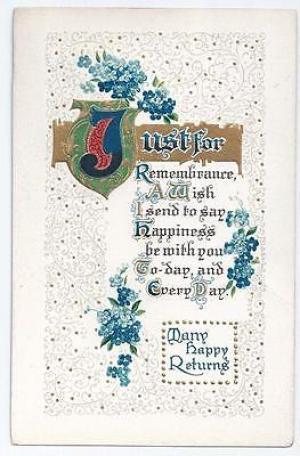 Just for
Remembrance,
A Wish
I send to say
Happiness
be with you
To-day, and
Every Day.
Many
Happy
Returns